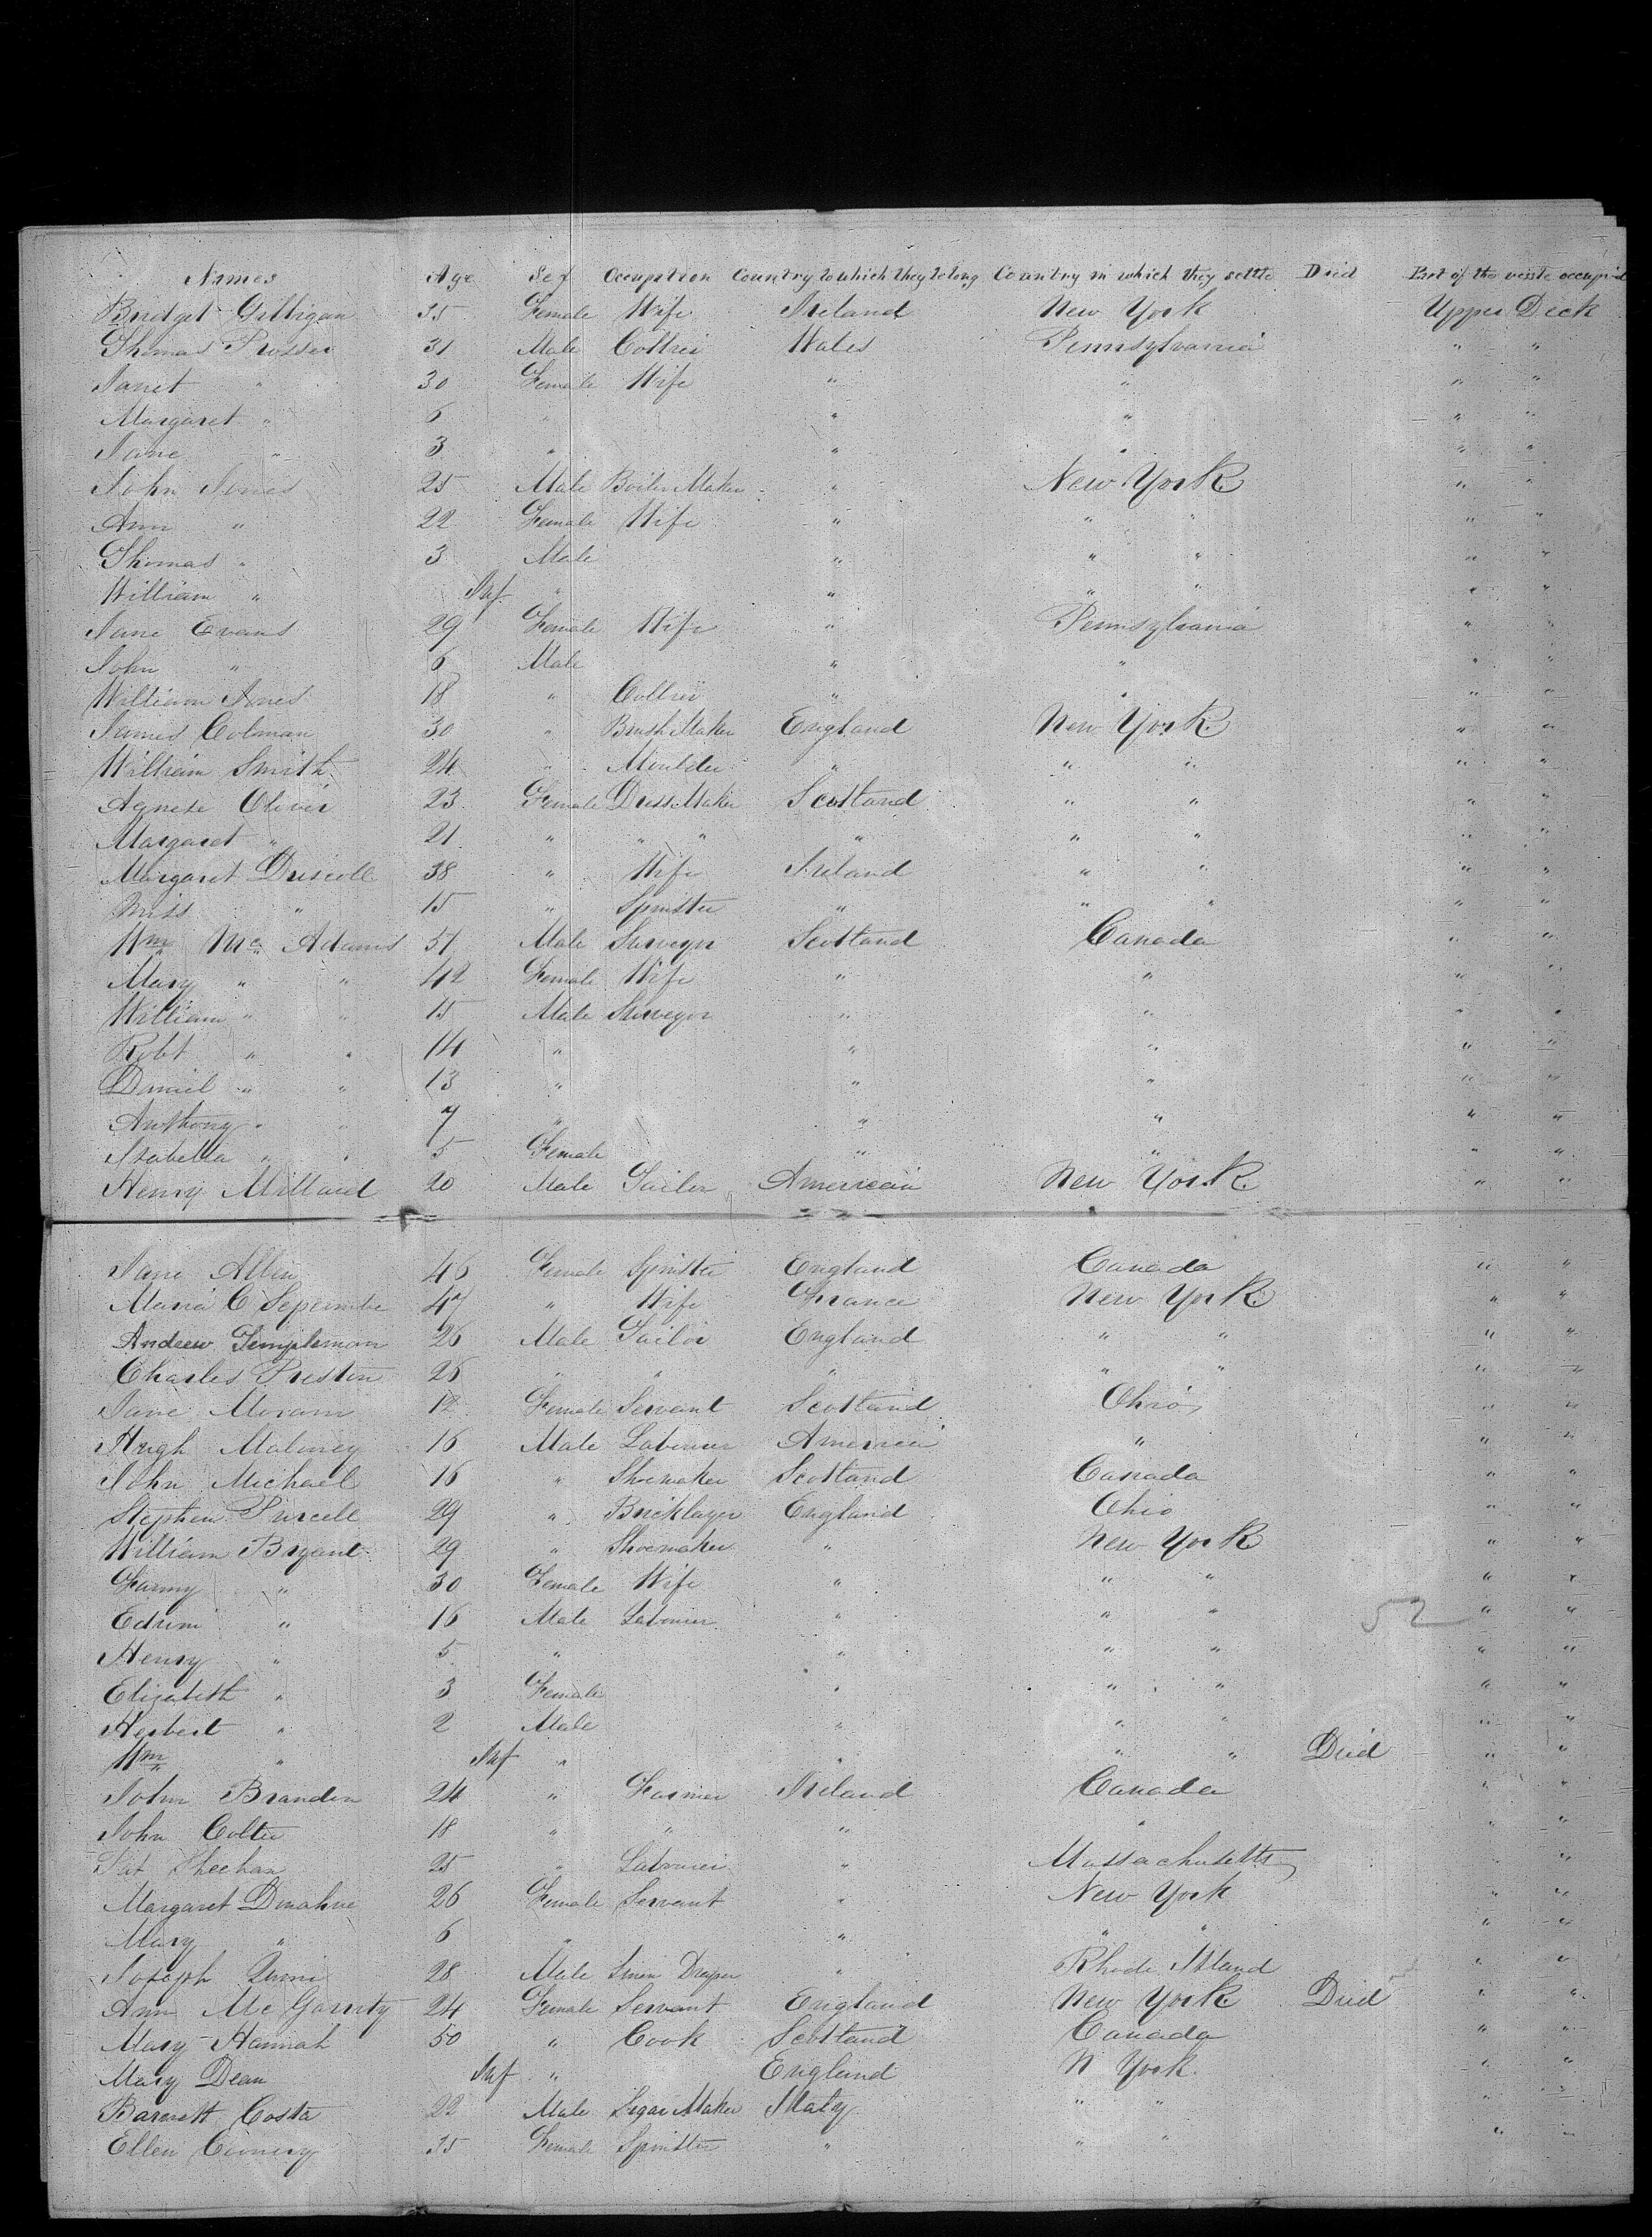 Names Age Sex Occupation Country to which they belong Country in which they settle Died Part of the vessle occupied
Bridget Gilligan 35 Female Wife Ireland New York Upper Deck
Thomas Prosser 31 Male Collier Wales Pennsylvania " "
Janet " 30 Female Wife " " " "
Margaret " 6 " " " " "
Jane " 3 " " " " "
John Jones 25 Male Boiler Maker " New York " "
Ann " 22 Female Wife " " " " "
Thomas " 3 Male " " " " "
William " Inf " " " " " "
Jane Evans 29 Female Wife " Pennsylvania " "
John " 6 Male " " " "
William Jones 18 " Collier " " " "
James Colman 30 " Brush Maker England New York " "
William Smith 24 " Moulder " " " " "
Agnese Oliver 23 Female Dress Maker Scotland " " " "
Margaret " 21 " " " " " " " "
Margaret Driscoll 38 " Wife Ireland " " " "
Miss " 15 " Spinster " " " " "
Wm Mc Adams 51 Male Surveyor Scotland Canada " "
Mary " " 42 Female Wife " " " "
William " " 15 Male Surveyor " " " "
Robt " " 14 " " " " "
Daniel " " 13 " " " " "
Anthony " " 7 " " " " "
Isabella " " 5 Female " " " "
Henry Millard 20 Male Tailor American New York " "
Jane Allen 46 Female Spinster England Canada " "
Maria C 47 " Wife France New York " "
Andrew Templeman 26 Male Tailor England " " " "
Charles Preston 26 " " " " " " "
Jane Moram 12 Female Servant Scotland Ohio " "
Hugh Maloney 16 Male Labourer America " " "
John Michael 16 " Shoemaker Scotland Canada " "
Stephen Purcell 29 " Bricklayer England Ohio " "
William Bryant 29 " Shoemaker " New York " "
Fanny " 30 Female Wife " " " " "
Edwin " 16 Male Labourer " " " 52 " "
Henry " 5 " " " " " "
Elizabeth " 3 Female " " " " "
Herbert " 2 Male " " " " "
Wm " Inf " " " " Died " "
John Branden 24 " Farmer Ireland Canada " "
John Colter 18 " " " " " "
Pat Sheehan 25 " Labourer " Massachusetts " "
Margaret Donahue 26 Female Servant " New York " "
Mary " 6 " " " " " "
Joseph 28 Male Linen Draper " Rhode Island " "
Ann Mc Garrity 24 Female Servant England New York Died " "
Mary Hannah 50 " Cook Scotland Canada " "
Mary Dean Inf " England N York " "
Barnett Costa 22 Male Segar Maker Italy " " " "
Ellen 35 Female Spinster " " " " "